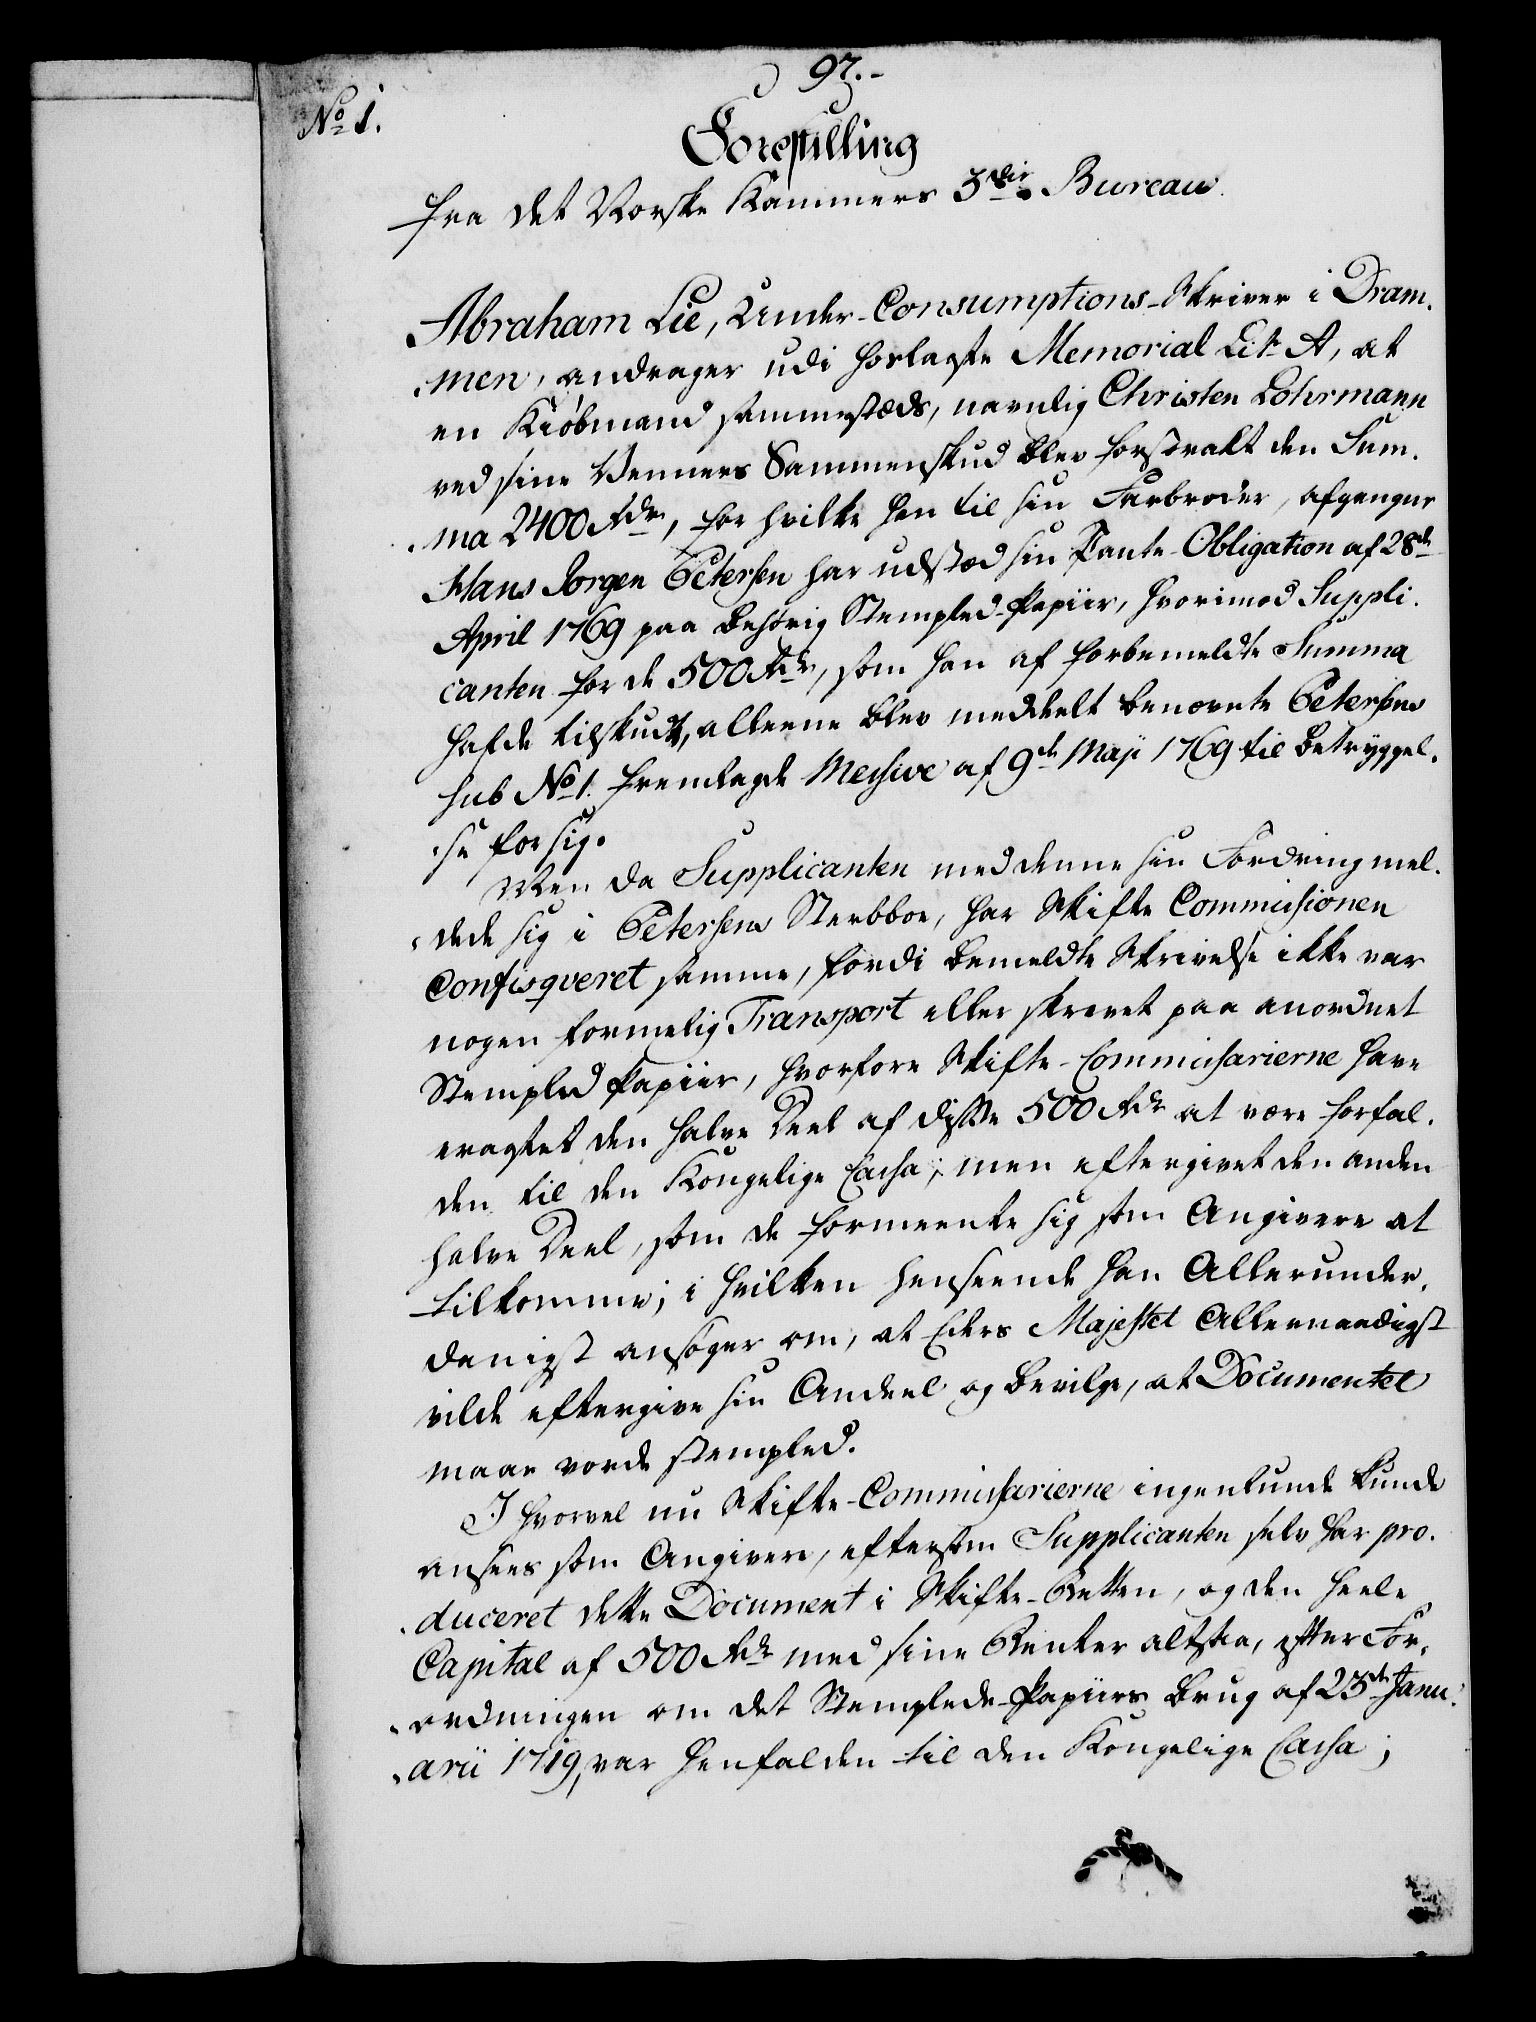 97.-
No 1.
Forestilling
fra det Norske Kammers 3die Bureau.
Abraham Lie, Under-Consumptions-Skriver i Dram-
-men, andrager udi hoslagte Memorial Lit. A, at
en Kiøbmand sammestæds, navnlig Christen Lohrmann
ved sine Venners Sammenskud blev forstrakt den Sum-
-ma 2400 Rdr, for hvilke han til sin Farbroder, afgangne
Hans Jørgen Petersen har udstæd sin Pante-Obligation af 28de
April 1769 paa behørig Stempled-Papiir, hvorimod Suppli-
canten for de 500 Rdr, som han af forbemeldte Summa
hafde tilskudt, alleene blev meddeelt benævnte Petersens
sub No 1. fremlagde Messive af 9de Maji 1769 til betryggel-
-se for sig.
Men da Supplicanten med denne sin Fordring mel-
-dede sig i Petersens Sterbboe, har Skifte Commissionen
Confisqveret samme, fordi bemeldte Skrivelse ikke var
nogen formelig Transport eller skrevet paa anordnet
Stempled Papiir, hvorfore Skifte-Commissarierne have
eragtet den halve Deel af disse 500 Rdr at være forfal-
den til den Kongelige Cassa; men eftergivet den anden
halve Deel, som de formeente sig som Angivere at
tilkomme; i hvilken henseende han Allerunder-
danigst ansøger om, at Eders Majestet Allernaadigst
vilde eftergive sin Andeel og bevilge, at Documentet
maae vorde stempled.
I hvorvel nu Skifte-Commissarierne ingenlunde kunde
ansees som Angivere, eftersom Supplicanten selv har pro-
-duceret dette Document i Skifte-Retten, og den heele
Capital af 500 Rdr med sine Renter altsaa, efter For-
-ordningen om det Stemplede-Papiirs Brug af 23de Janu-
-arii 1719, var henfalden til den Kongelige Cassa;